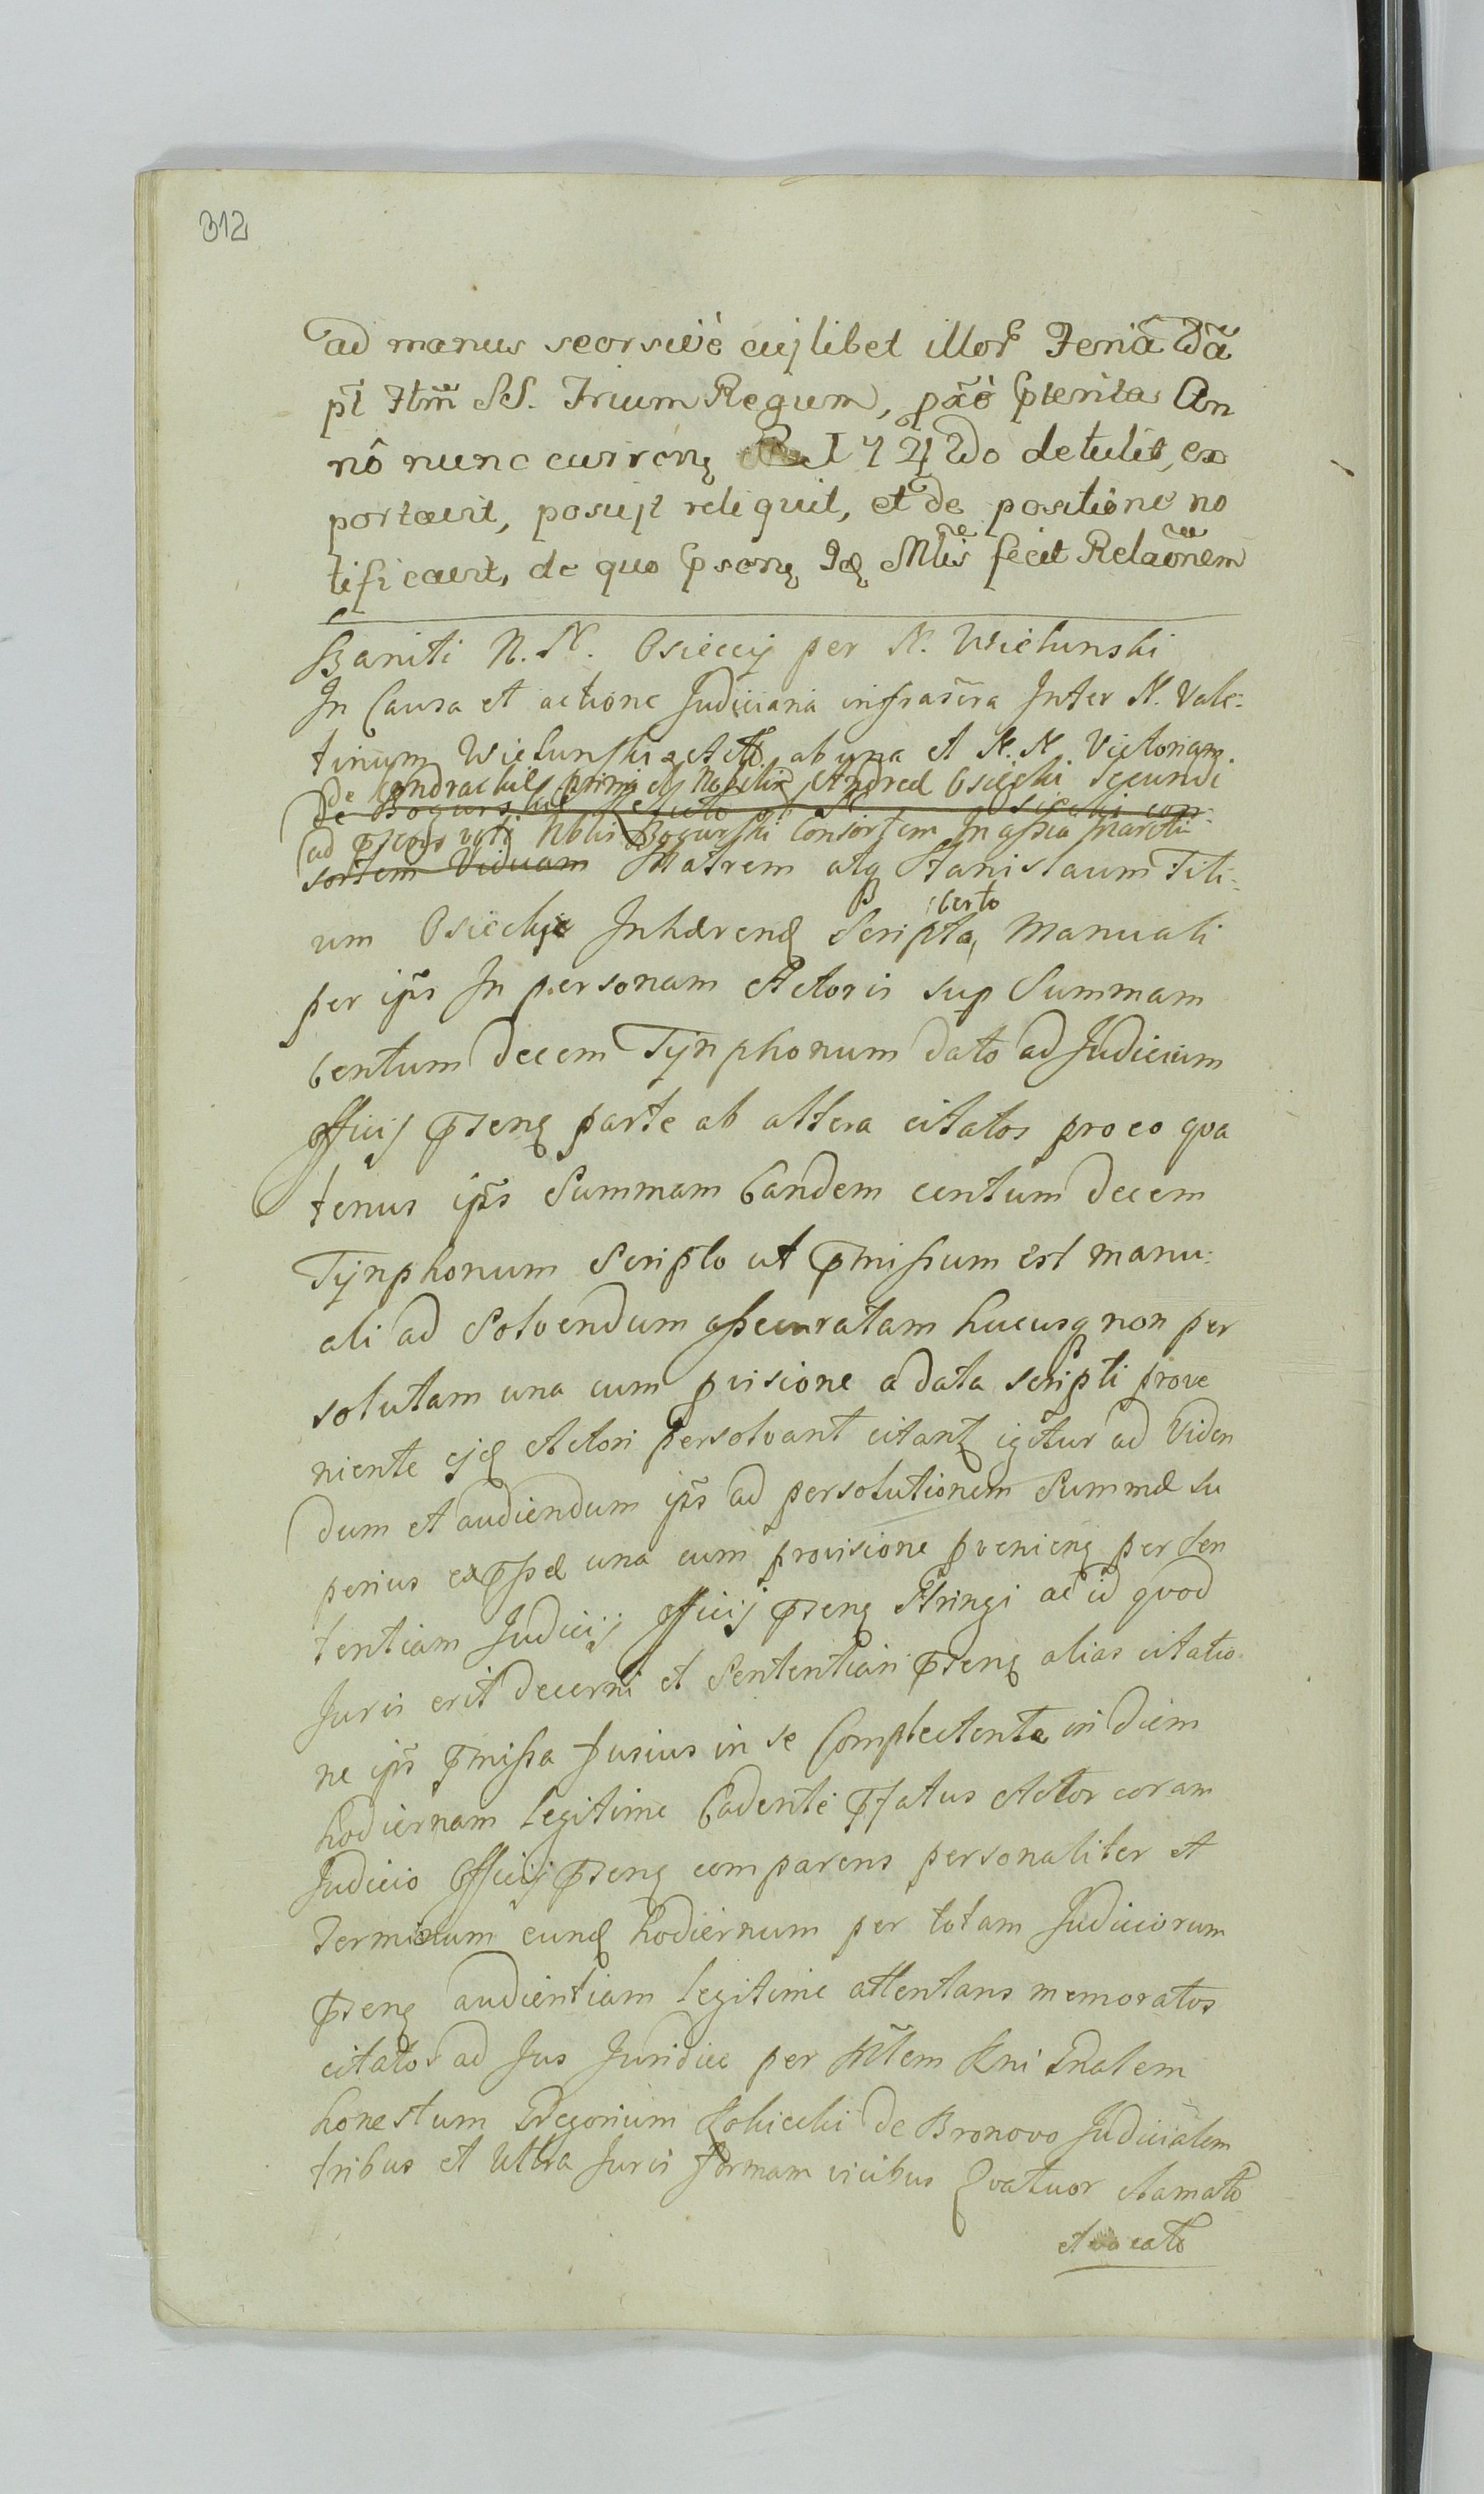 312
ad manus seorsivè cujlibet illor Feria 2da
pt Ftm SS. Trium Regum, pxõ pterita An
nô nunc curren 1742do detulit, ex
portavit, posuit reliquit, et de positione no
tificavit, de quo psens Id Mlis fecit Relaõnem
Baniti N. N. Osieccy per N. Wielunski
In Causa et actione Judiciaria infrascra Inter N. Vale:
tinum Wielunski Act ab una et N. N. Victoriam
de Condrackie primi et Nobilis Andreæ Osiecki Secundi
De Bogurskie Osiecki con
ad psens vero Nblis Bogurski Consortem In assia mariti
sortem Viduam Matrem atq Stanislaum Fili:
um Osieckie Inhærend Scripto certo Manuali
per ips In personam Actoris sup Summam
Centum decem Tynphonum dato ad Judicium
Officij psens parte ab altera citatos pro eo qua
tenus ips Summam Eandem centum decem
Tynphonum Scripto ut pmissum est manu:
ali ad Solvendum assecuratam hucusq non per
solutam una cum pvisione a data scripti prove
niente ejd Actori persolvant citant igitur ad Viden
dum et audiendum ips ad persolutionem Summæ su
perius expssæ una cum provisione pvenien per Sen
tentiam Judicij Officij psens Stringi ac id quod
Juris erit decerni et Sententiari psens alias citatio
ne ips pmissa fusius in se Complectente in diem
hodiernam legitime Cadente pfatus Actor coram
Judicio Officij psens comparens personaliter et
Terminum eund hodiernum per totam Judiciorum
psens audientiam legitime attentans memoratos
citatos ad Jus Juridice per Mlem Rni Gnalem
honestum Gregorium Kobiecki de Bronovo Judicialem
tribus et Ultra Juris formam vicibus Quatuor clamato
et vocato